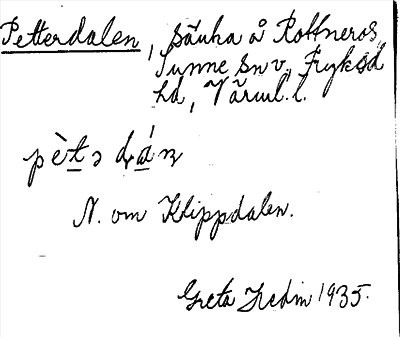 Petterdalen, sänka å Rottneros,
Sunne sn v., Fryksd
hd, Värml. l.
pèt̲ɔ dá̲n
N. om Klippdalen.
Greta Hedin 1935.